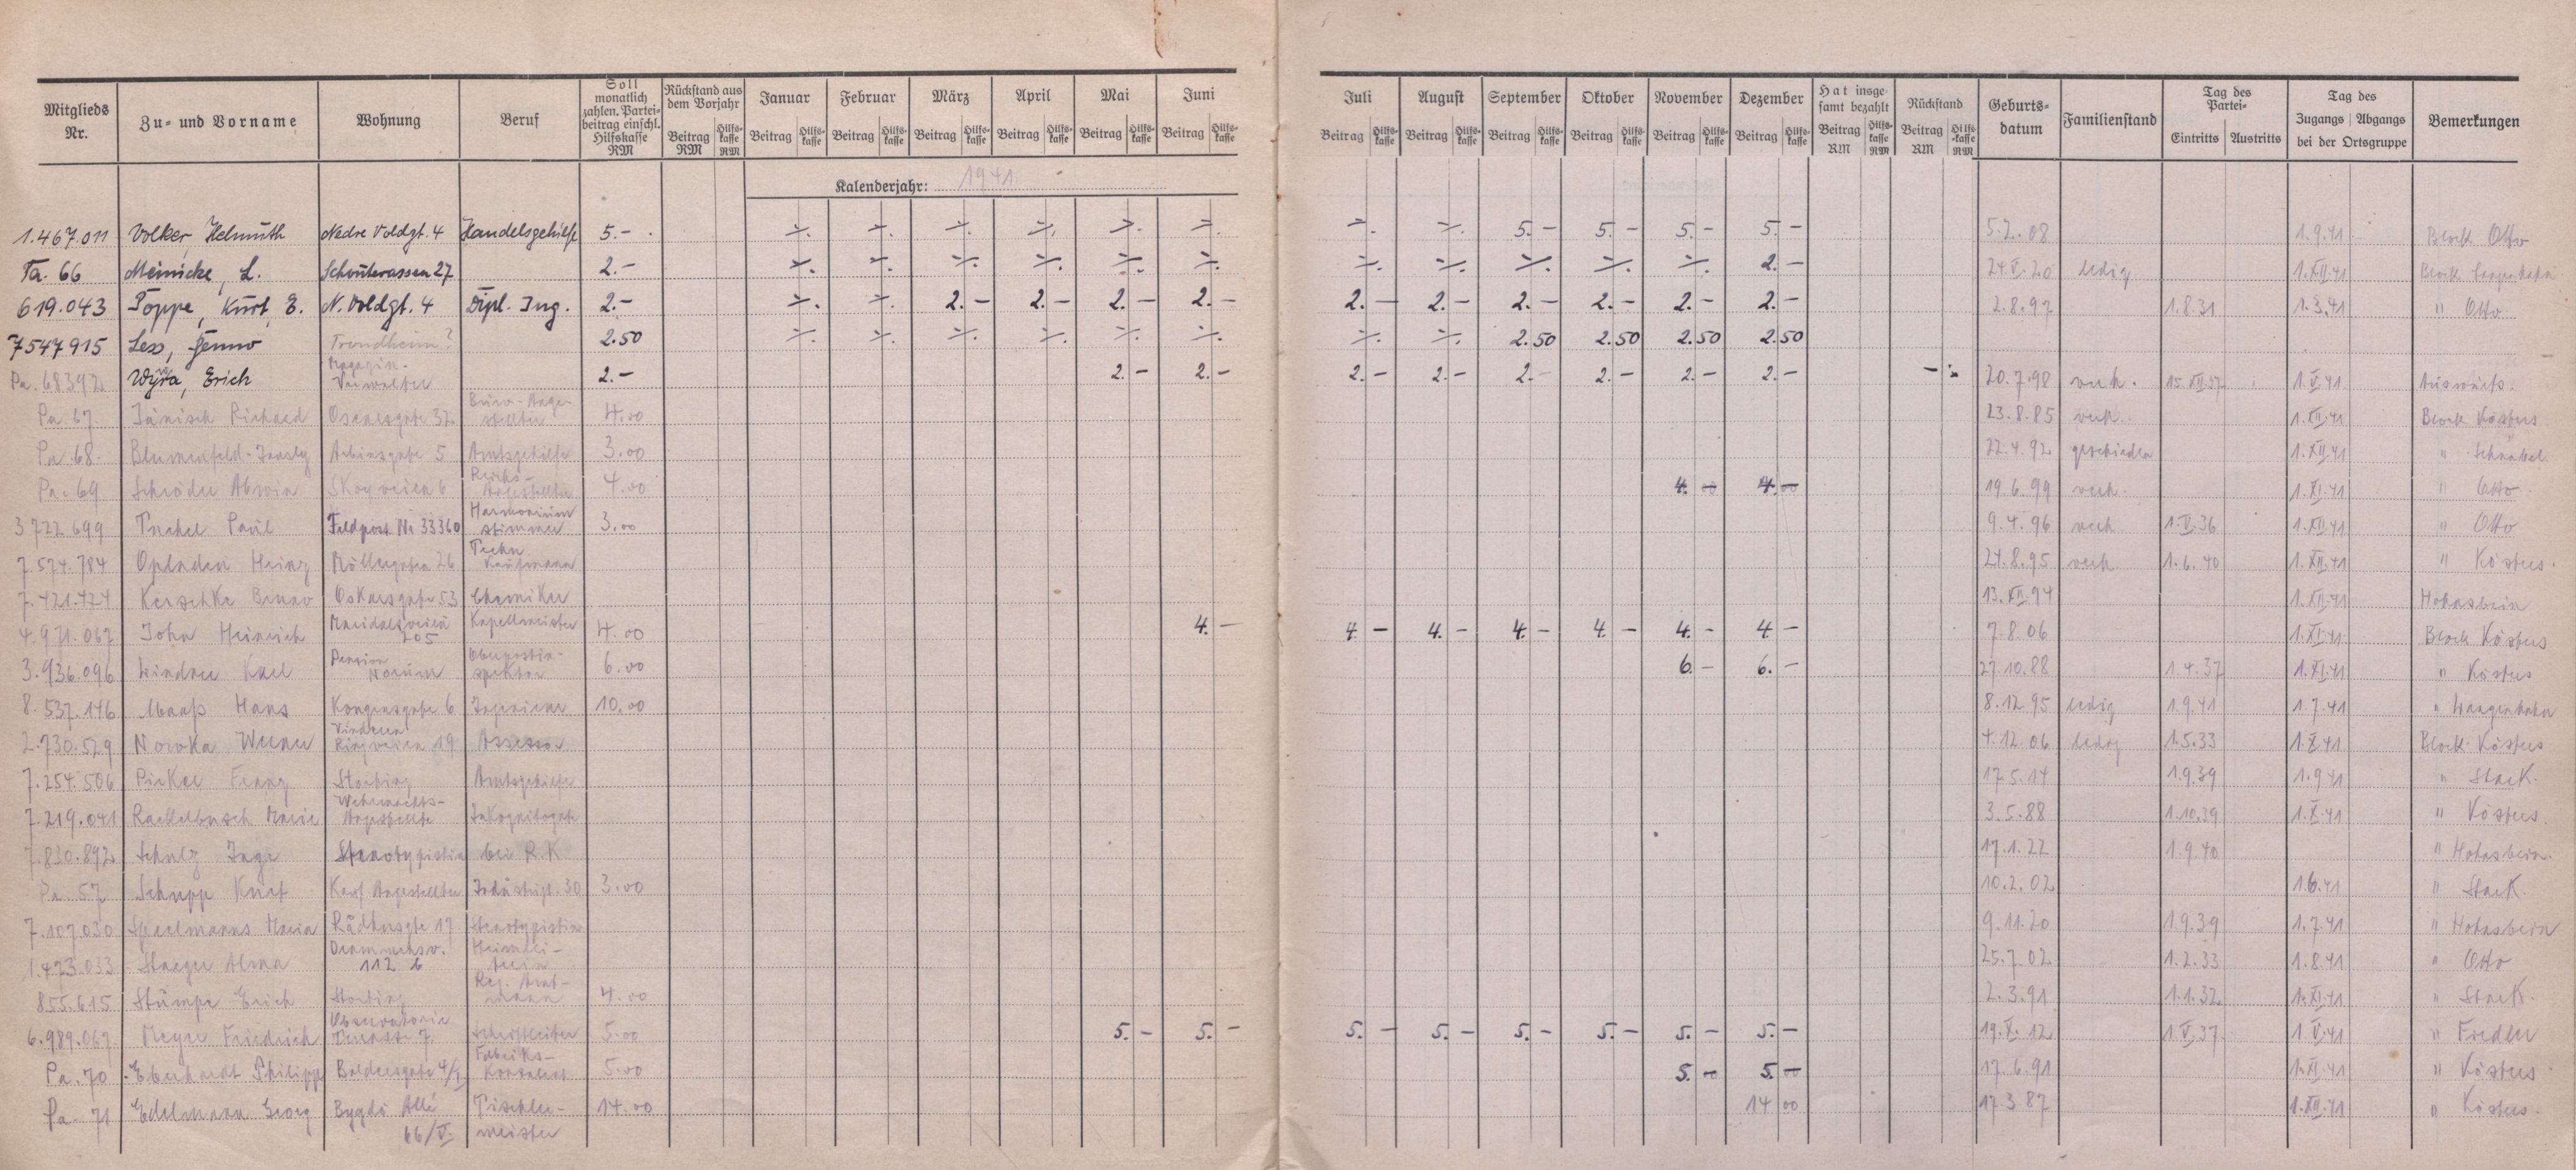 Mitglieds Nr. | Zu- und Vorname | Wohnung | Beruf | Soll monatlich zahlen. Partei-beitrag einschl. Hilfskasse RM | Rückstand aus dem Vorjahr Beitrag RM Hilfs-kasse RM | Januar Beitrag Hilfs-kasse | Februar Beitrag Hilfs-kasse | März Beitrag Hilfs-kasse | April Beitrag Hilfs-kasse | Mai Beitrag Hilfs-kasse | Juni Beitrag Hilfs-kasse | Juli Beitrag Hilfs-kasse | August Beitrag Hilfs-kasse | September Beitrag Hilfs-kasse | Oktober Beitrag Hilfs-kasse | November Beitrag Hilfs-kasse | Dezember Beitrag Hilfs-kasse | Hat insge-samt bezahlt Beitrag RM Hilfs-kasse RM | Rückstand Beitrag RM Hilfs-kasse RM | Geburts-datum | Familienstand | Tag des Partei- Eintritts Austritts | Tag des Zugangs Abgangs bei der Ortsgruppe | Bemerkungen
Kalenderjahr: 1941
1.467.011 Volker Helmuth Nedre Voldgt. 4 Handelsgehilfe 5.- ⁒ ⁒ ⁒ ⁒ ⁒ ⁒ ⁒ ⁒ 5.- 5.- 5.- 5.- 5.2.08 1.9.41 Block Otto
Ta. 66 Meinicke, L. Schouterassen 27 2.- ⁒ ⁒ ⁒ ⁒ ⁒ ⁒ ⁒ ⁒ ⁒ ⁒ ⁒ 2.- 24.V.20 ledig 1.XII.41 Block
619.043 Poppe, Kurt E. N. Voldgt. 4 Dipl. Ing. 2.- ⁒ ⁒ 2.- 2.- 2.- 2.- 2.- 2.- 2.- 2.- 2.- 2.- 2.8.97 1.8.31 1.3.41 " Otto
7547915 Less, Trondheim? 2.50 ⁒ ⁒ ⁒ ⁒ ⁒ ⁒ ⁒ ⁒ 2.50 2.50 2.50 2.50
Pa. 68392 Wyra, Erich Magazin-Verwalter 2.- 2.- 2.- 2.- 2.- 2.- 2.- 2.- 2.- 20.7.98 verh. 15.XII.37 1.V.41
Pa. 67 Jänisch Richard Oscarsgate 32 Büro-Angestellter 4.00 23.8.85 verh. 1.XII.41 Block Kösters
Pa. 68. Arbinsgate 5 Amtsgehilfe 3.00 22.4.92 geschieden 1.XII.41 " Schnabel
Pa. 69 Schröder Skogveien 6 Reichs-Angestellter 4.00 4.00 4.00 19.6.99 verh. 1.XI.41 " Otto
3722699 Paul Feldpost Nr 33360 Harmonium stimmer 3.00 9.4.96 verh 1.V.36 1.XII.41 " Otto
7.574.784 Opladen Heinz Möllergaten 26 Techn. Kaufmann 21.8.95 verh. 1.6.40 1.XII.41 " Kösters.
7.421.424 Kerschke Bruno Oskarsgate 53 Chemiker 13.XII.94 1.XII.41 Hohnsbein
4.971.067 John Heinrich Maridalsveien 205 Kapellmeister 4.00 4.- 4.- 4.- 4.- 4.- 4.- 4.- 7.8.06 1.XI.41 Block Kösters
3.936.096 Karl Pension Oberpostin-spektor 6.00 6.- 6.- 27.10.88 1.4.37 1.XI.41 " Kösters
8.537.146 Maaß Hans Kongensgate 6 Ingenieur 10.00 8.12.95 ledig 1.9.41 1.7.41 "
2.730.529 Nowka Werner Vinderen Ringveien 19 Assessor 4.12.06 ledig 1.5.33 1.X.41 Block Kösters
7.254.506 Pirker Franz Storting Amtsgehilfe 17.5.14 1.9.39 1.9.41 " Stark.
7.219.041 Rackelbusch Maria Wehrmachts-Angestellte Inkognitogate 3.5.88 1.10.39 1.X.41 " Kösters.
7.830.892 Schulz Inge Stenotypistin bei R.K 17.1.22 1.9.40 " Hohnsbein.
Pa. 57 Schupp Kurt Kauf. Angestellter Industrigt. 30 3.00 10.2.02 1.6.41 " Stark.
7.107.030 Spielmanns Maria Rådhusgte 17 Stenotypistin 9.11.20 1.9.39 1.7.41 " Hohnsbein
1.473.033 Staeger Alma Drammensv. 112 b Heimlei-terin 25.7.02 1.2.33 1.8.41 " Otto
855.615 Stümpe Erich Storting Reg. Amt-mann 4.00 2.3.91 1.1.32 1.XI.41 " Stark.
6.989.067 Meyer Friedrich Observatorie Terrasse 7 Schriftleiter 5.00 5.- 5.- 5.- 5.- 5.- 5.- 5.- 5.- 19.X.12 1.V.37 1.V.41 "
Pa. 70 Eberhardt Philipp Baldersgate 4/I Fabriks- 5.00 5.00 5.00 17.6.91 1.XI.41 " Kösters
Pa. 71 Edelmann Georg Bygdö Allé 66/V. Tischler-meister 14.00 14 00 17.3.87 1.XII.41 " Kösters.